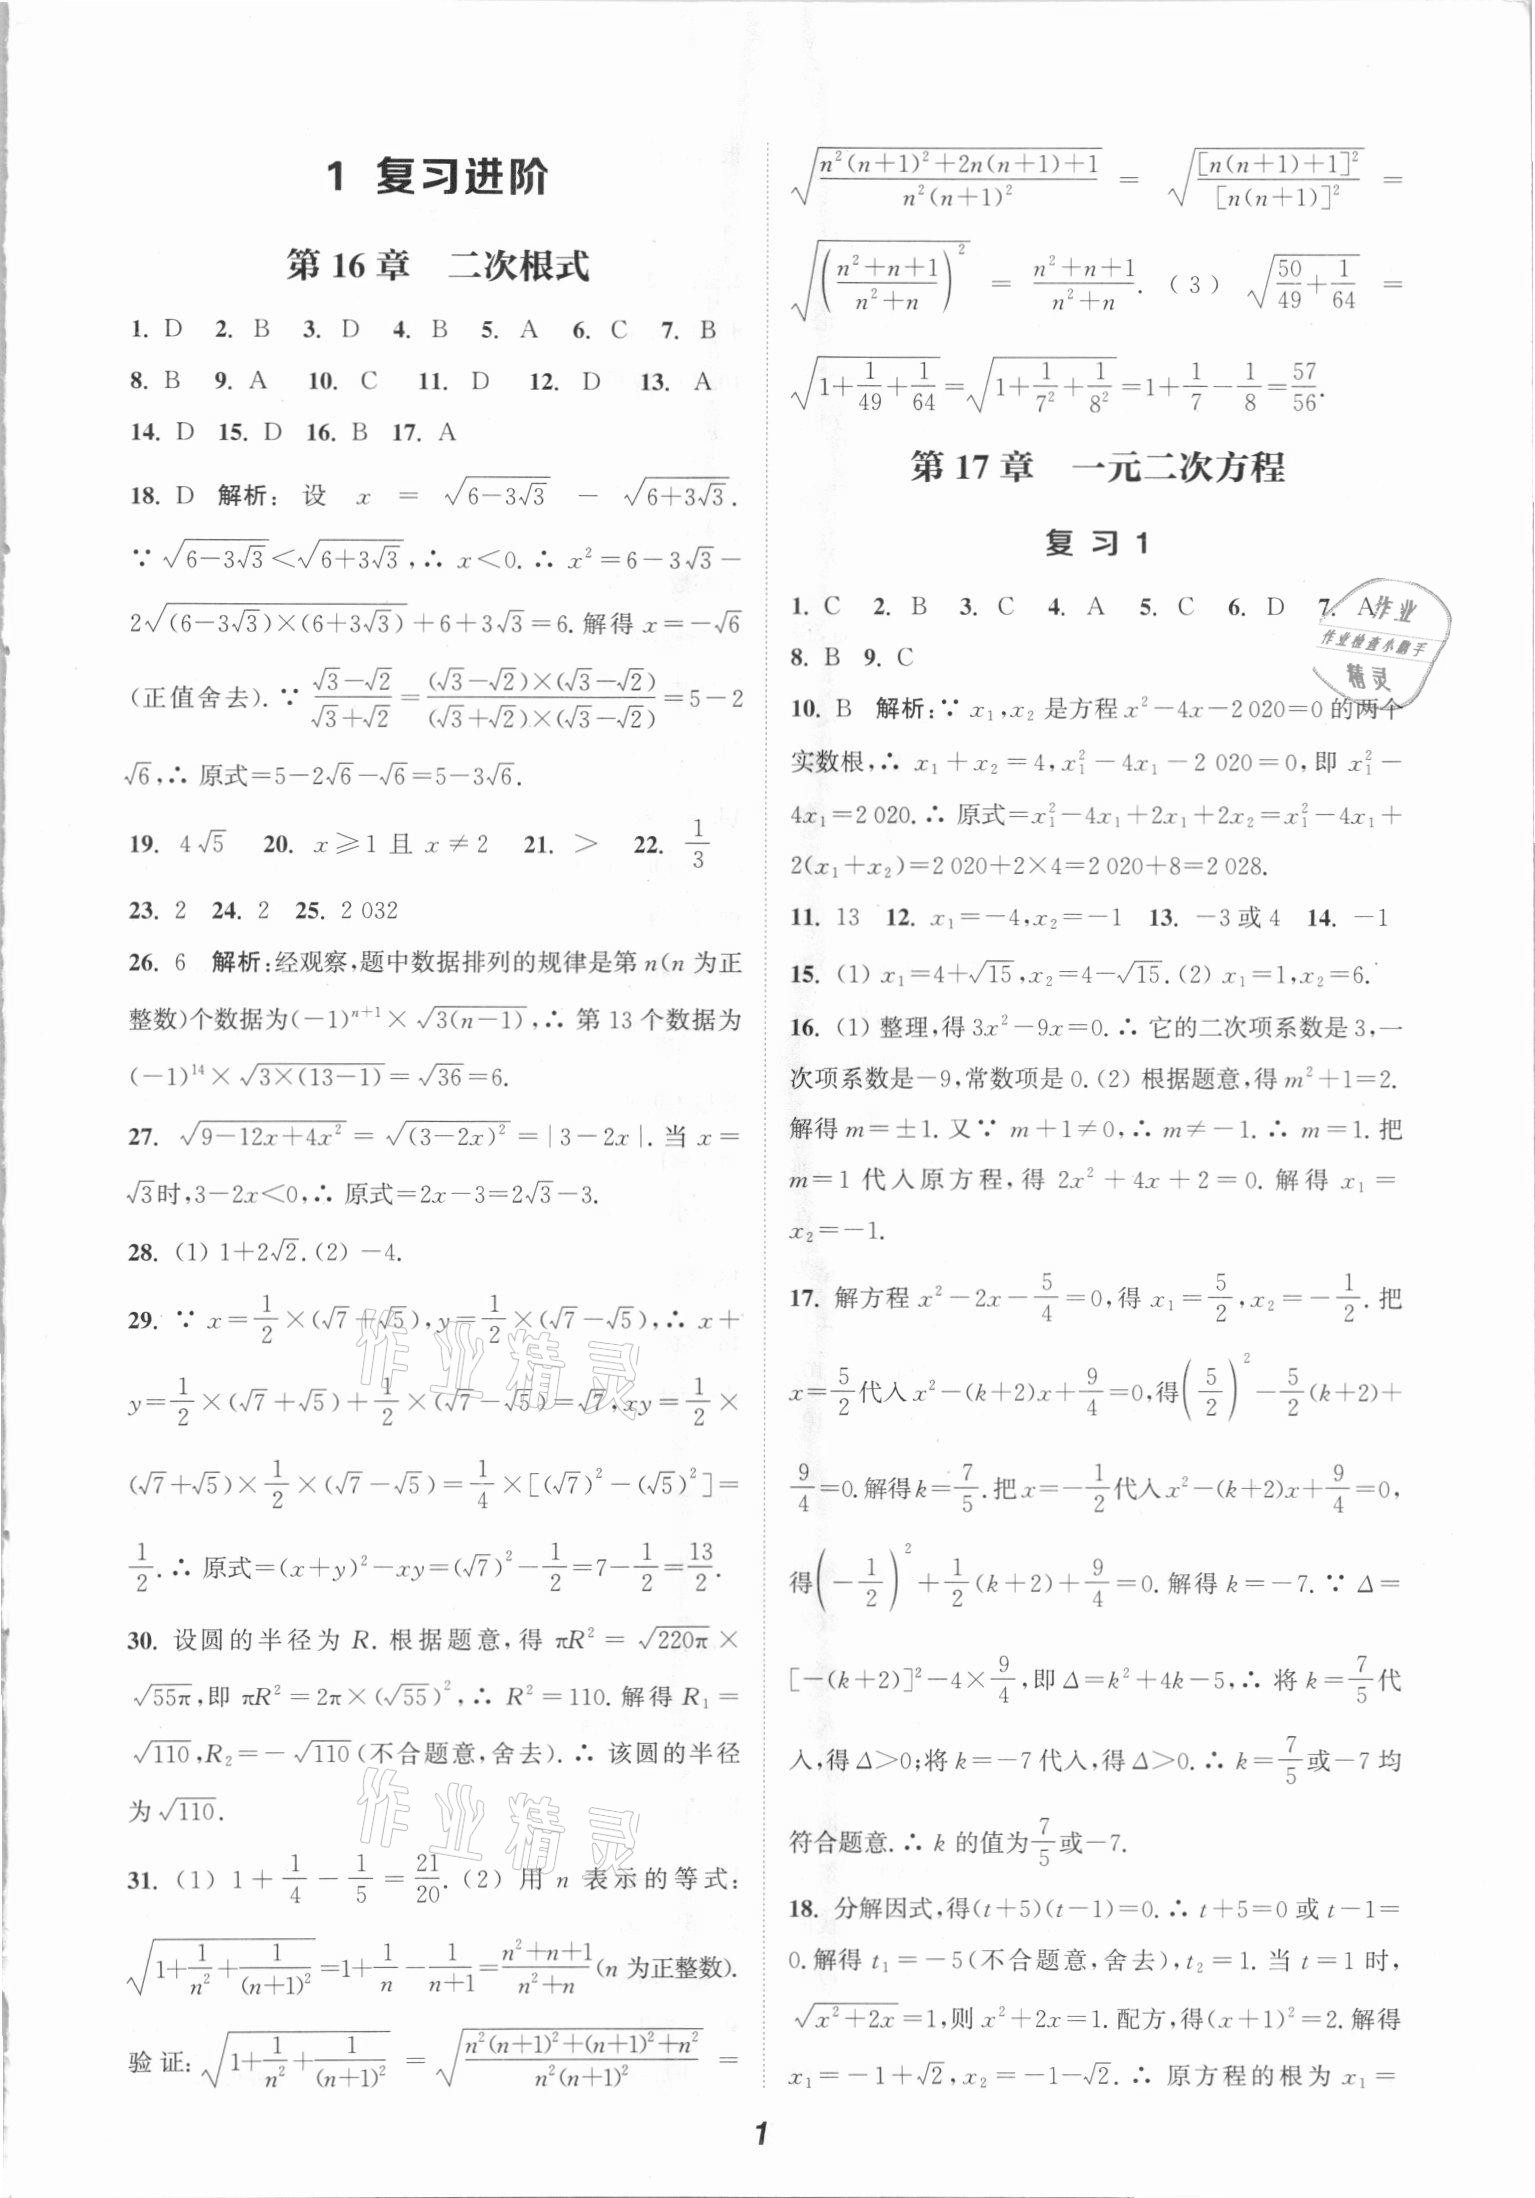 1 复习进阶
第 16 章 二次根式
1. D 2. B 3. D 4. B 5. A 6. C 7. B
8. B 9. A 10. C 11. D 12. D 13. A
14. D 15. D 16. B 17. A
18. D 解析: 设 x = √(6-3√3) - √(6+3√3).
∵ √(6-3√3)<√(6+3√3),∴ x<0.∴ x²=6-3√3-
2√((6-3√3)×(6+3√3))+6+3√3=6.解得 x=-√6
(正值舍去).∵ (√3-√2)/(√3+√2)=((√3-√2)×(√3-√2))/((√3+√2)×(√3-√2))=5-2
√6,∴ 原式=5-2√6-√6=5-3√6.
19. 4√5 20. x⩾1 且 x≠2 21. > 22. 1/3
23. 2 24. 2 25. 2 032
26. 6 解析:经观察,题中数据排列的规律是第 n(n 为正
整数)个数据为(-1)ⁿ⁺¹×√(3(n-1)),∴ 第 13 个数据为
(-1)¹⁴×√(3×(13-1))=√36=6.
27. √(9-12x+4x²)=√((3-2x)²)=|3-2x|.当 x=
√3时,3-2x<0,∴ 原式=2x-3=2√3-3.
28. (1) 1+2√2.(2) -4.
29. ∵ x=1/2×(√7+√5),y=1/2×(√7-√5),∴ x+
y=1/2×(√7+√5)+1/2×(√7-√5)=√7,xy=1/2×
(√7+√5)×1/2×(√7-√5)=1/4×[(√7)²-(√5)²]=
1/2.∴ 原式=(x+y)²-xy=(√7)²-1/2=7-1/2=13/2.
30. 设圆的半径为 R.根据题意,得 πR²=√(220π)×
√(55π),即 πR²=2π×(√55)²,∴ R²=110.解得 R₁=
√110,R₂=-√110(不合题意,舍去).∴ 该圆的半径
为√110.
31. (1) 1+1/4-1/5=21/20.(2) 用 n 表示的等式:
√(1+1/n²+1/(n+1)²)=1+1/n-1/(n+1)=(n²+n+1)/(n²+n)(n 为正整数).
验证:√(1+1/n²+1/(n+1)²)=√((n²(n+1)²+(n+1)²+n²)/(n²(n+1)²))=
√((n²(n+1)²+2n(n+1)+1)/(n²(n+1)²)) = √([n(n+1)+1]²/[n(n+1)]²) =
√(((n²+n+1)/(n²+n))²) = (n²+n+1)/(n²+n). (3) √(50/49+1/64) =
√(1+1/49+1/64)=√(1+1/7²+1/8²)=1+1/7-1/8=57/56.
第 17 章 一元二次方程
复 习 1
1. C 2. B 3. C 4. A 5. C 6. D 7. A
8. B 9. C
10. B 解析:∵ x₁,x₂ 是方程 x²-4x-2 020=0 的两个
实数根,∴ x₁+x₂=4,x₁²-4x₁-2 020=0,即 x₁²-
4x₁=2 020.∴ 原式=x₁²-4x₁+2x₁+2x₂=x₁²-4x₁+
2(x₁+x₂)=2 020+2×4=2 020+8=2 028.
11. 13 12. x₁=-4,x₂=-1 13. -3或 4 14. -1
15. (1) x₁=4+√15,x₂=4-√15.(2) x₁=1,x₂=6.
16. (1) 整理,得 3x²-9x=0.∴ 它的二次项系数是 3,一
次项系数是-9,常数项是 0.(2) 根据题意,得 m²+1=2.
解得 m=±1.又∵ m+1≠0,∴ m≠-1.∴ m=1.把
m=1 代入原方程,得 2x²+4x+2=0.解得 x₁=
x₂=-1.
17. 解方程 x²-2x-5/4=0,得 x₁=5/2,x₂=-1/2.把
x=5/2代入 x²-(k+2)x+9/4=0,得(5/2)²-5/2(k+2)+
9/4=0.解得 k=7/5.把 x=-1/2代入 x²-(k+2)x+9/4=0,
得(-1/2)²+1/2(k+2)+9/4=0.解得 k=-7.∵ Δ=
[-(k+2)]²-4×9/4,即 Δ=k²+4k-5,∴ 将 k=7/5代
入,得 Δ>0;将 k=-7 代入,得 Δ>0.∴ k=7/5或-7 均
符合题意.∴ k 的值为7/5或-7.
18. 分解因式,得(t+5)(t-1)=0.∴ t+5=0 或 t-1=
0.解得 t₁=-5(不合题意,舍去),t₂=1.当 t=1 时,
√(x²+2x)=1,则 x²+2x=1.配方,得(x+1)²=2.解得
x₁=-1+√2,x₂=-1-√2.∴ 原方程的根为 x₁=
作业
作业检查小助手
精灵
作业精灵
作业精灵
1